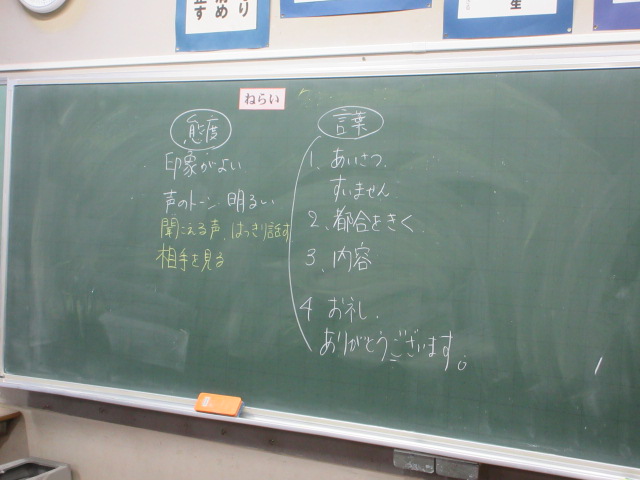 ねらい
態度
印象がよい
声のトーン 明るい
聞こえる声、はっきり話す
相手を見る
言葉
1、あいさつ、
すいません
2、都合をきく、
3、内容
4 お礼、
ありがとうございます。